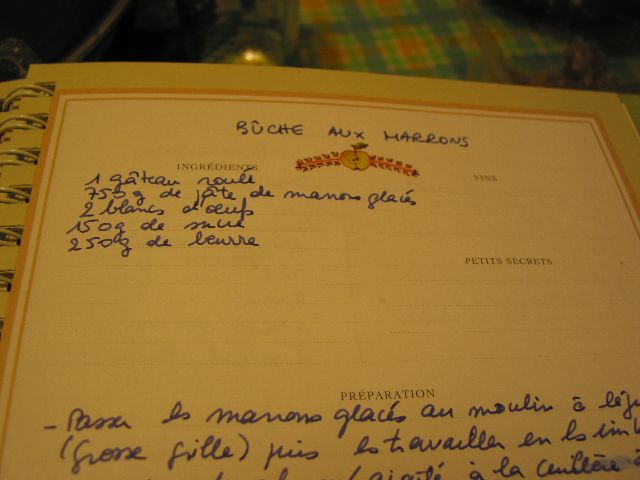 BÛCHE AUX MARRONS
INGRÉDIENTS
1 gâteau roulé
750g de pâte de marrons glacés
2 blancs d'oeufs
150g de sucre
250g de beurre
VINS
PETITS SECRETS
PRÉPARATION
- Passer les marrons glacés au moulin à
(grosse grille) puis les travailler en les
à la cuillère